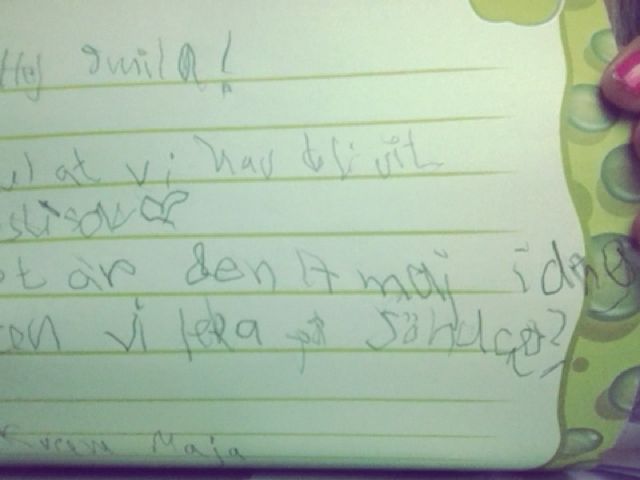 Hej Smilla!
at vi har blivit
är den 17 maj idag
vi leka på Söndag?
Kram Maja